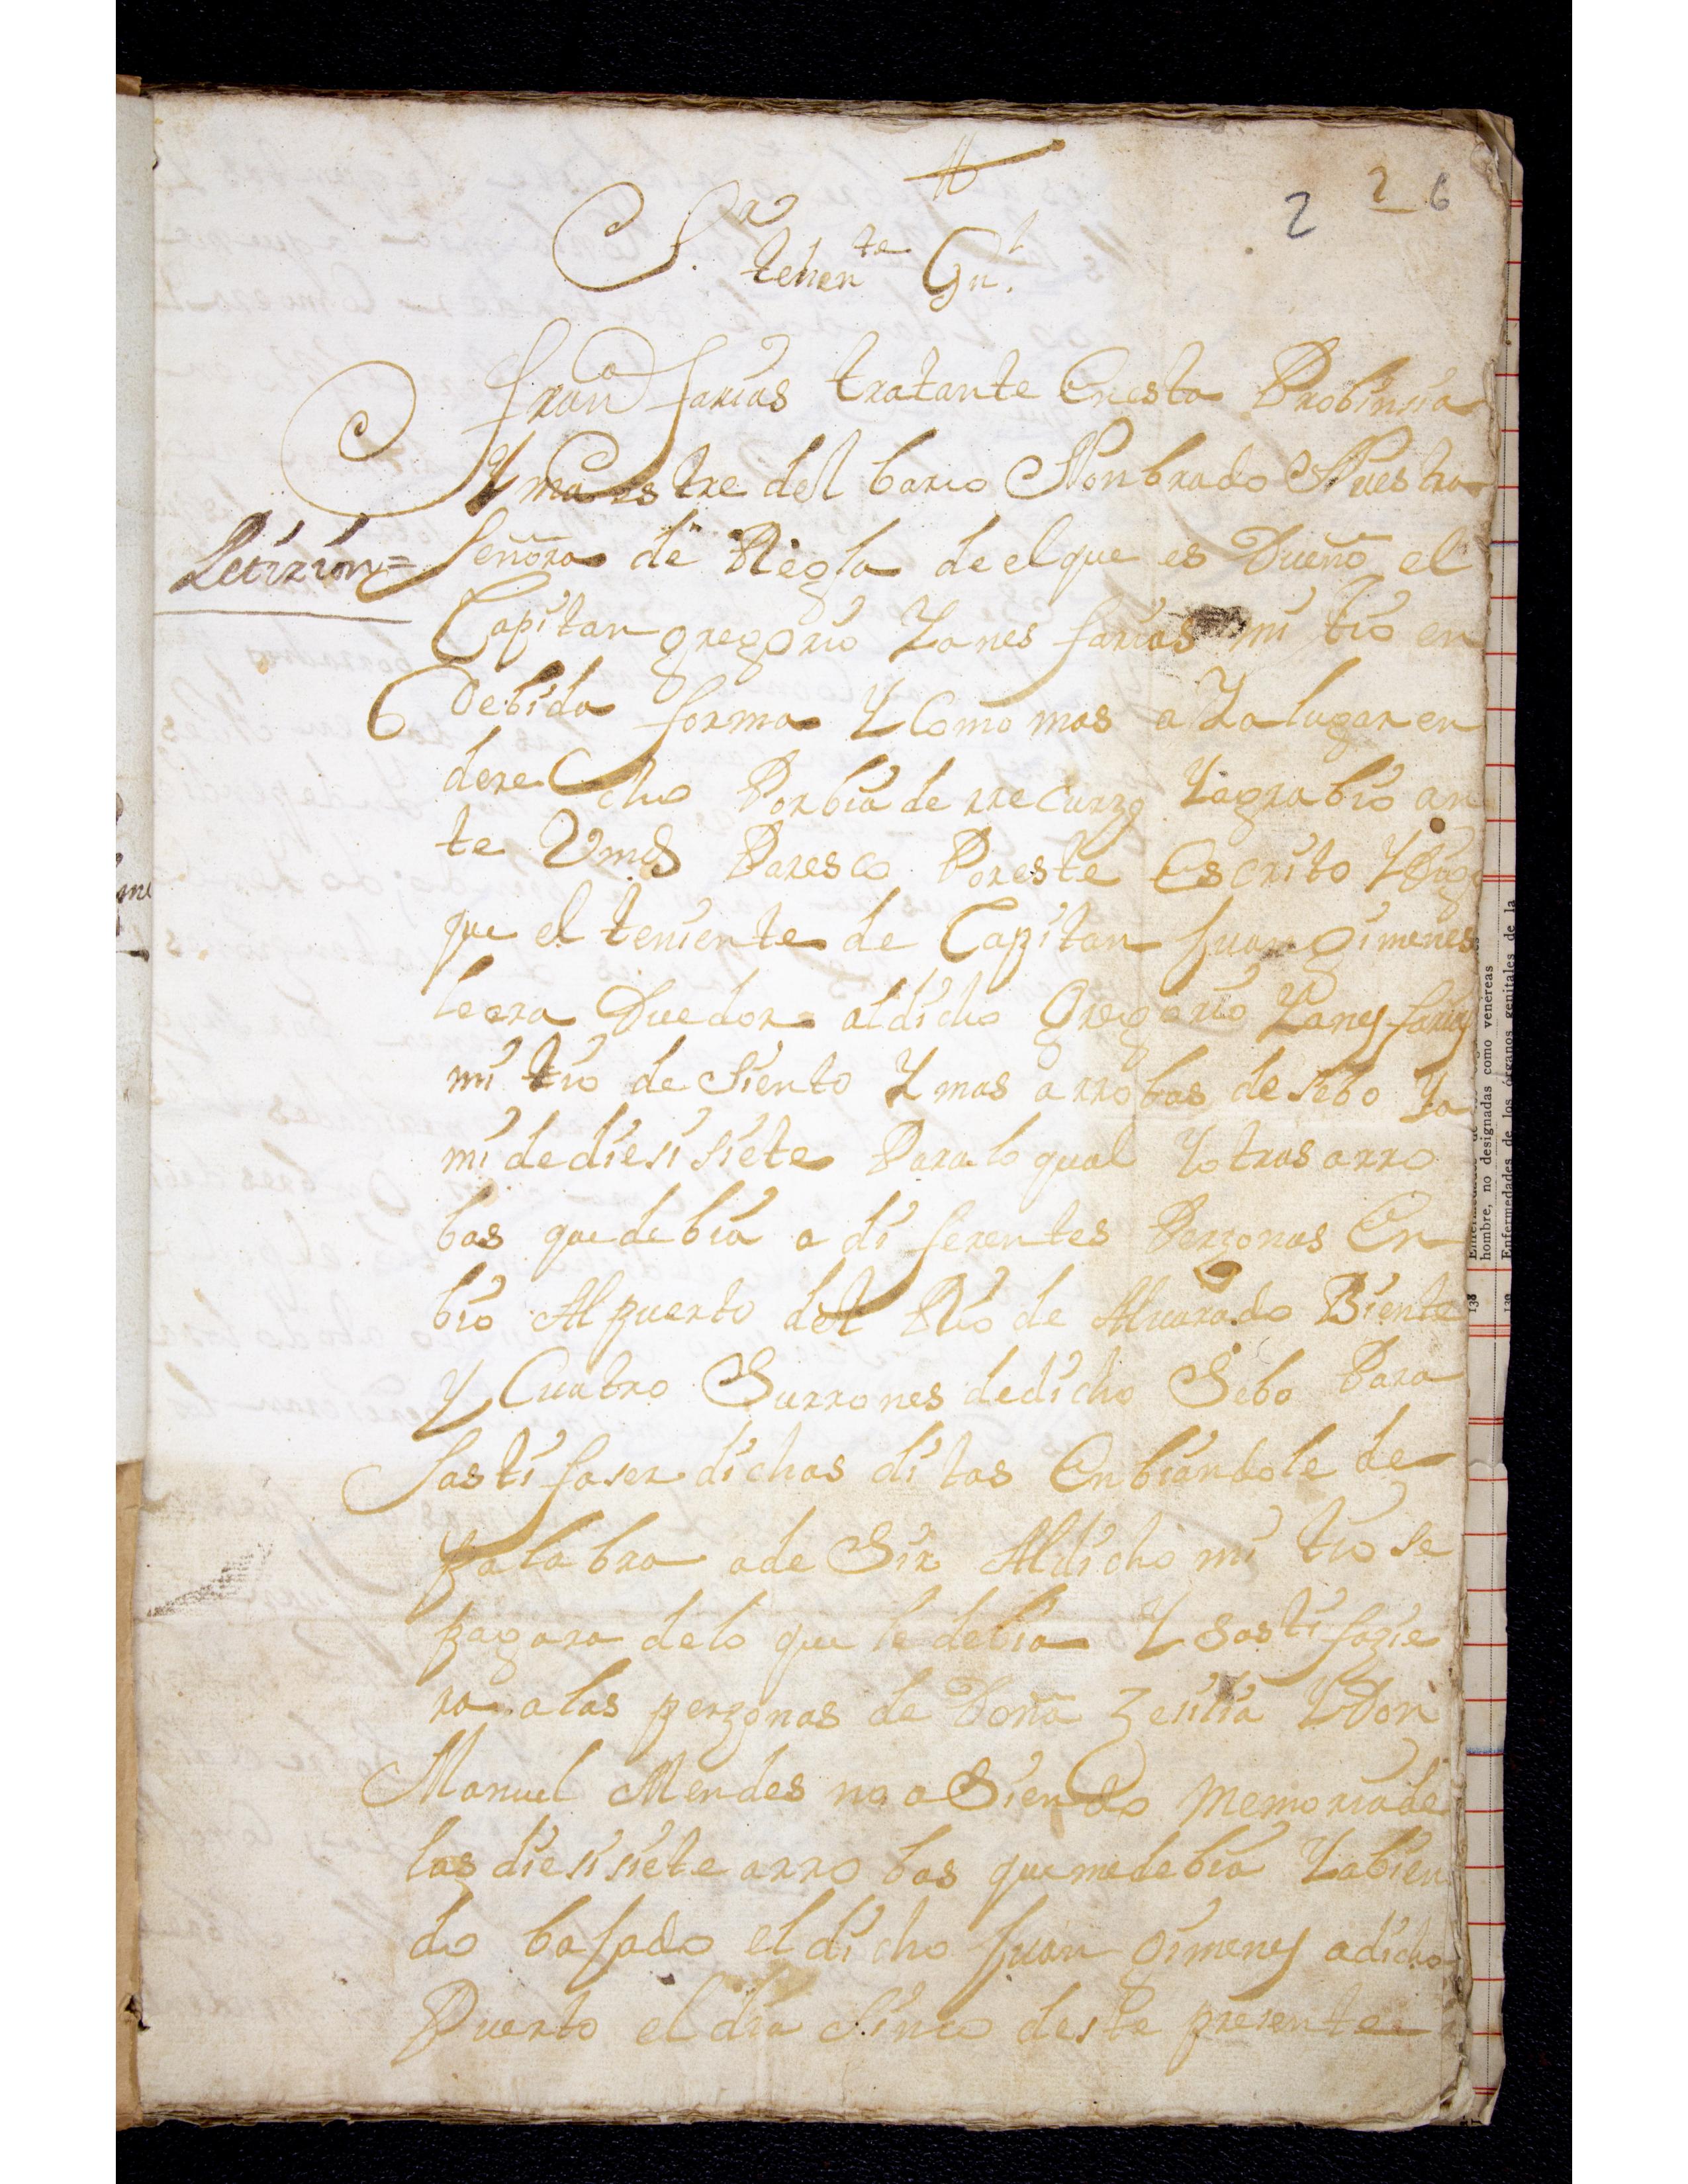 2 2 6
S.r
tenen.te Gn.l
fran.co farias tratante Enesta Probinsia
Y maestre del barco Nonbrado Nuestra
Petizion=
señora de Regla de el que es Dueño el
Capitan gregorio Yanes farias mi tio en
Debida forma Y Como mas a Ya lugar en
derecho Porbia de rrecurzo Yagrabio an
te Vmd Paresco Poreste Escrito Y Digo
que el teniente de Capitan Juan gimenes
leera Duedor aldicho Gregorio Yanes farias
mi tio de siento Y mas arrobas de sebo Ya
mi dediesisiete Paralo qual Yotras arro
bas quedebia a diferentes Perzonas En
bio Al puerto del Rio de Alvarado Biente
Y Cuatro Surrones dedicho Sebo Para
Sastifaser dichas ditas Enbiandole de
palabra adeSir Aldicho mi tio se
pagara delo que le debia Y sastifazie
ra alas perzonas de Doña Zesilia YDon
Manuel Mendes no aSiendo memoriade
las diesisiete arrobas quemedebia Yabien
do bajado el dicho Juan gimenes adicho
Puerto el dia Sinco deste presente
138 Enfermedades de
hombre, no designadas como venéreas
139 Enfermedades de los órganos genitales de la